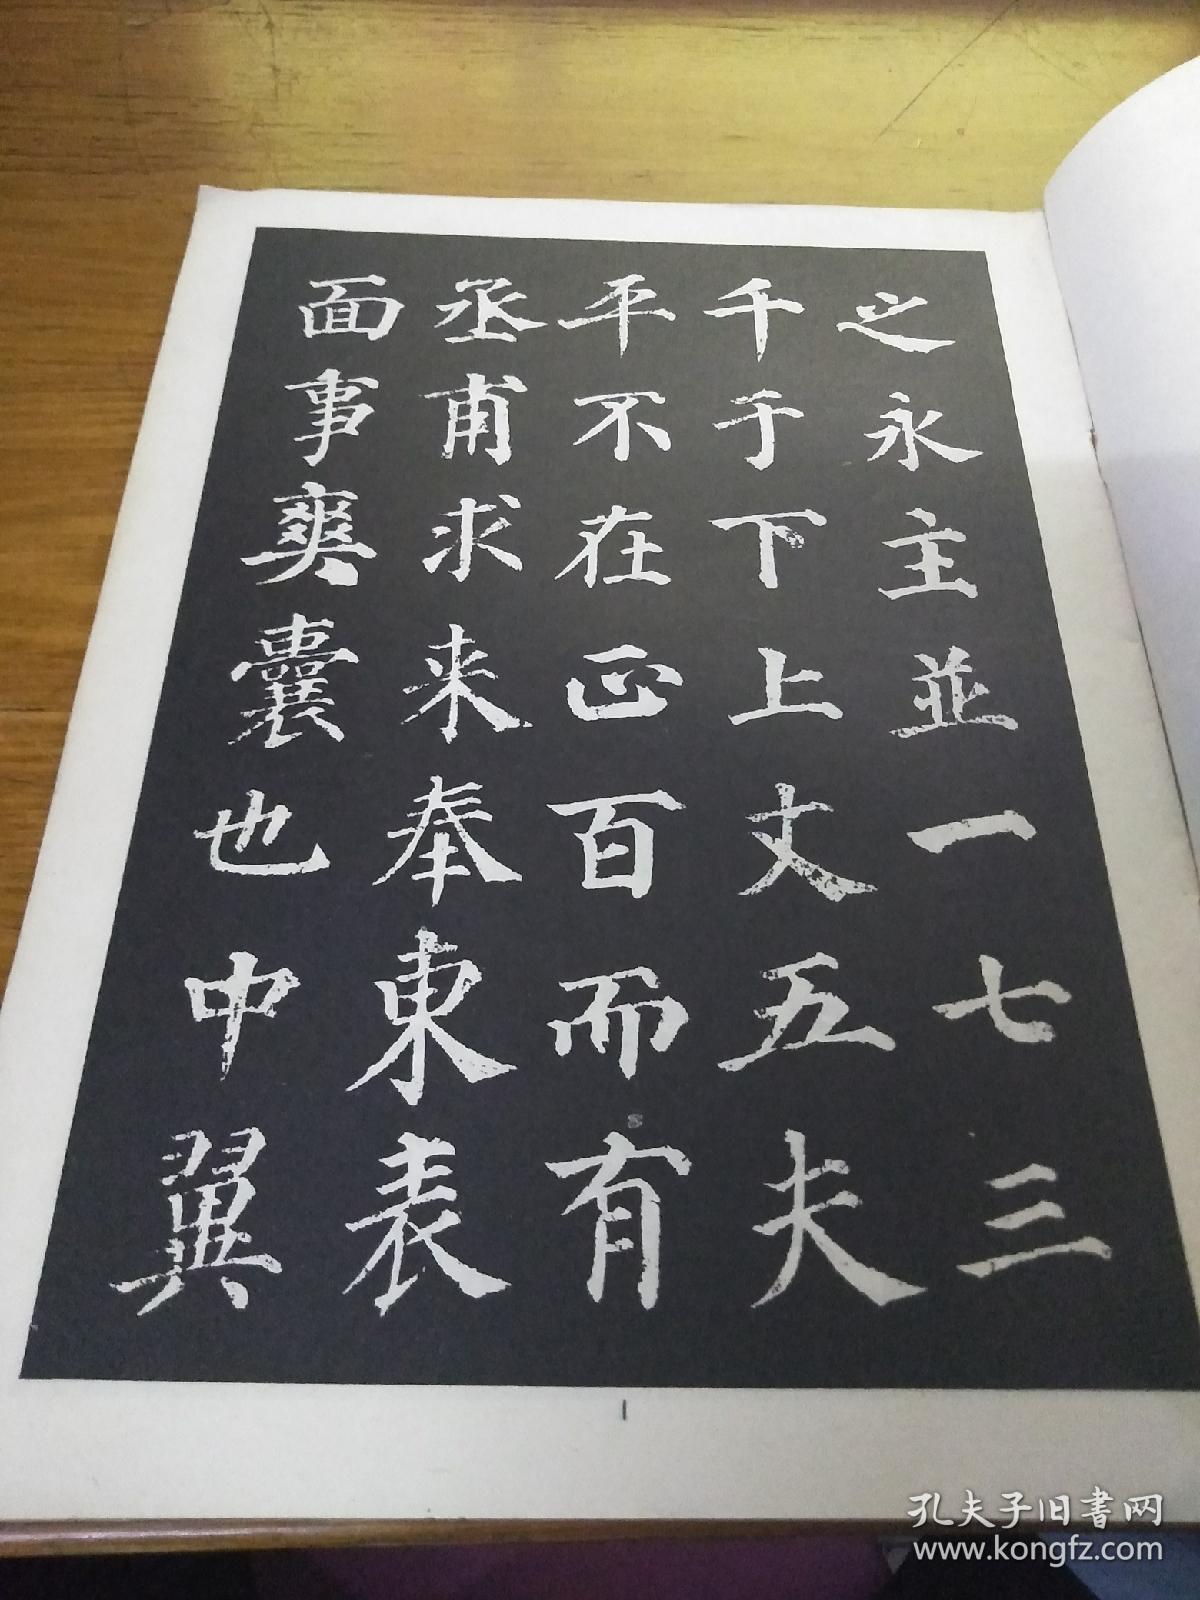 之永主並一七三
千于下上丈五夫
平不在正百而有
丞甫求来奉東表
面事爽囊也中翼
1
孔夫子旧書网
www.kongfz.com